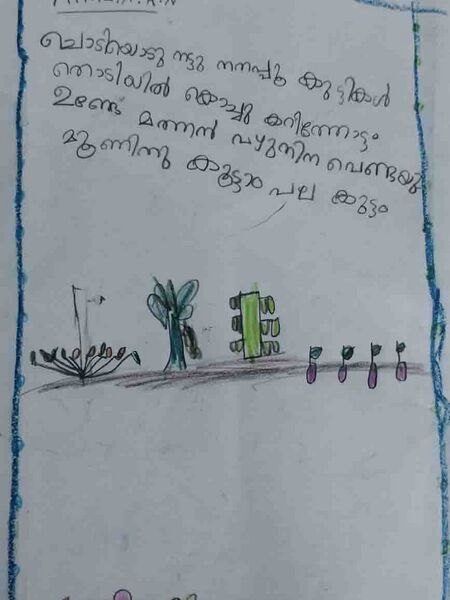 ചൊടിയൊടു നട്ടു നനപ്പൂ കുട്ടികൾ
തൊടിയിൽ കൊച്ചു കറിത്തോട്ടം
ഉണ്ടേ മത്തൻ വഴുതിന വെണ്ടയു
മൂണിന്നു കൂട്ടാം പല കൂട്ടം